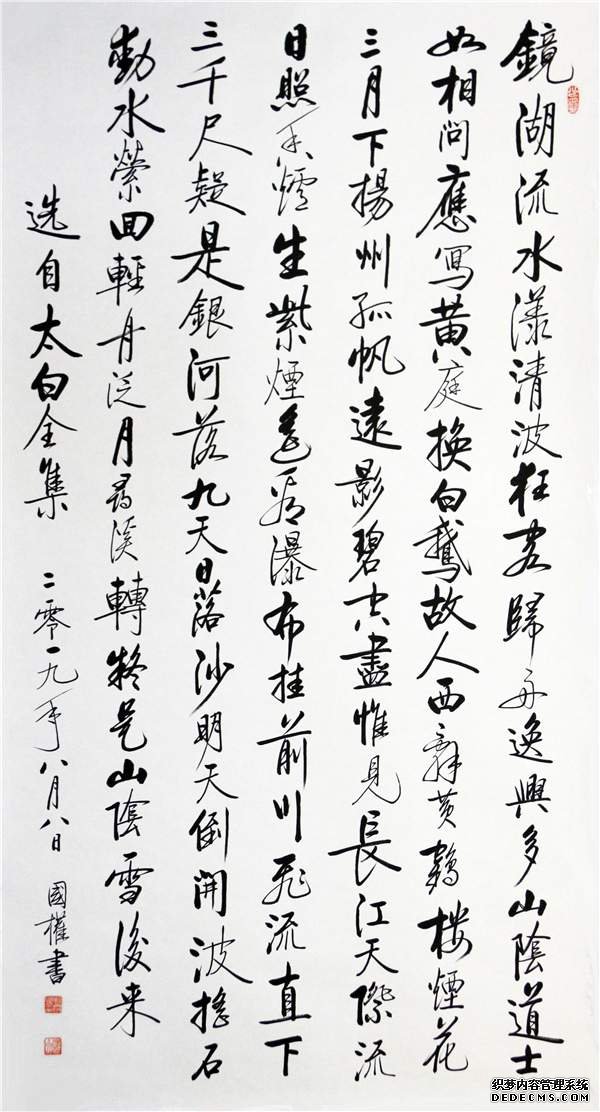 鏡湖流水漾清波狂客歸舟逸興多山陰道士
如相問應寫黄庭換白鵝故人西辭黄鶴樓煙花
三月下揚州孤帆遠影碧空盡惟見長江天際流
日照香爐生紫煙遥看瀑布挂前川飛流直下
三千尺疑是銀河落九天日落沙明天倒開波搖石
動水縈回輕舟泛月尋溪轉疑是山陰雪後来
选自太白全集 二零一九年八月八日 國權書
织梦内容管理系统
DEDECMS.COM